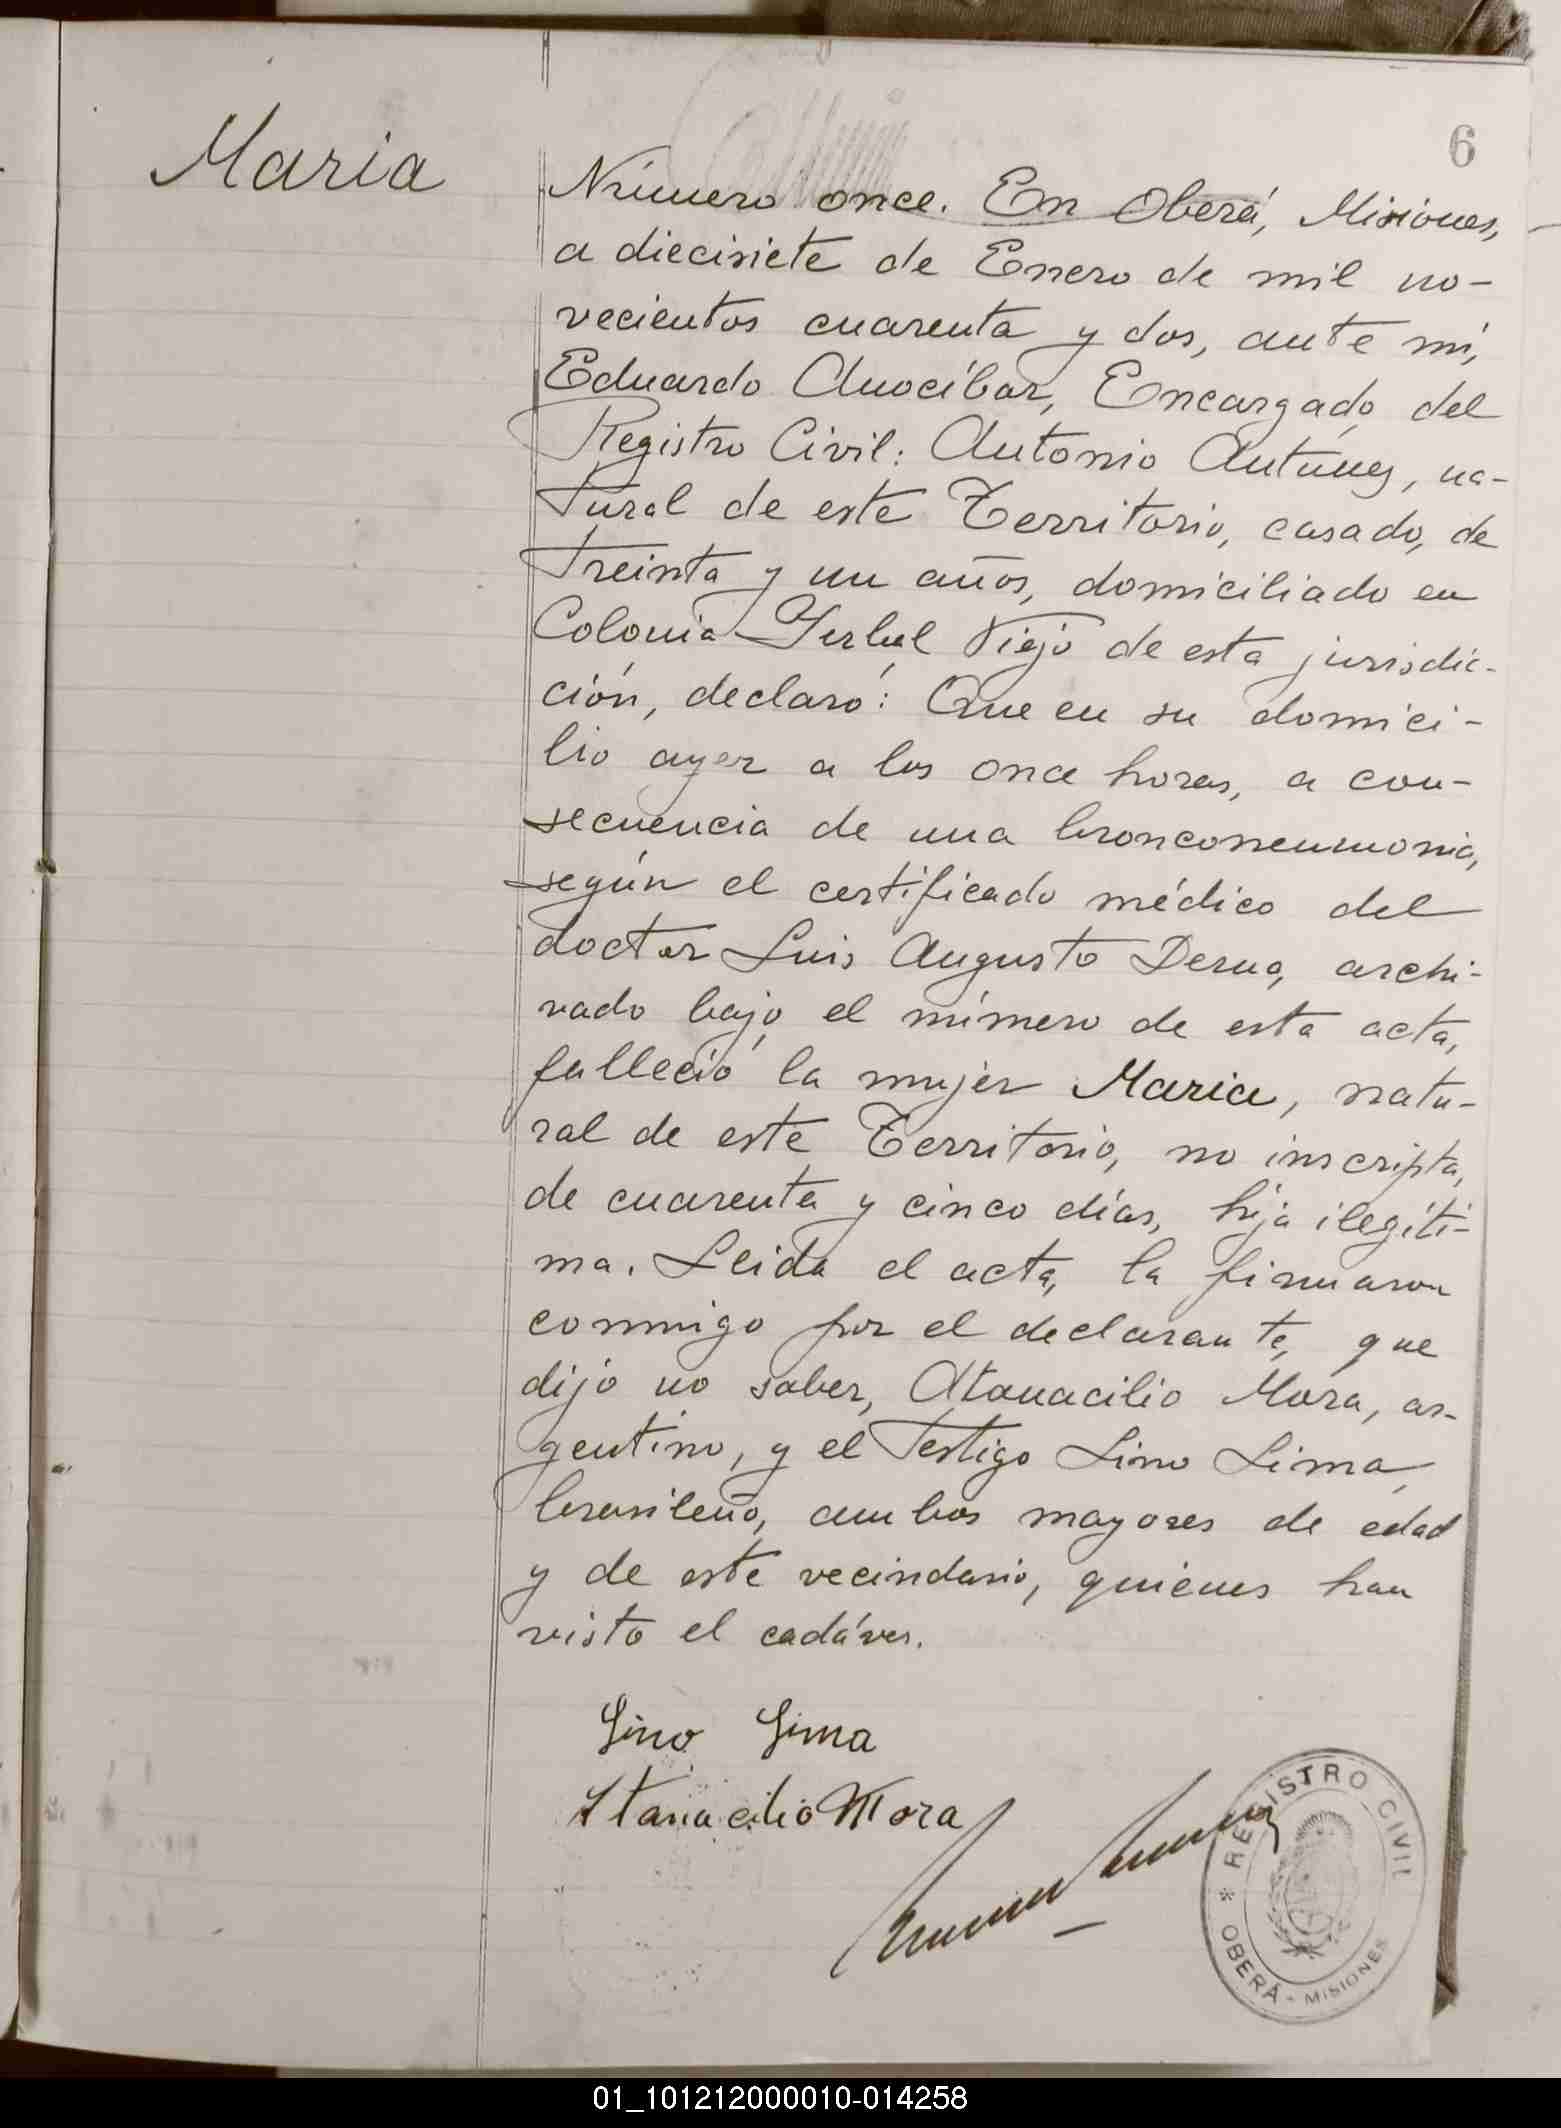 6
Maria
Número once. En Oberá, Misiones,
a diecisiete de Enero de mil no-
vecientos cuarenta y dos, ante mí,
Eduardo Anocíbar, Encargado del
Registro Civil: Antonio Antúnez, na-
tural de este Territorio, casado, de
treinta y un años, domiciliado en
Colonia Yerbal Viejo de esta jurisdic-
ción, declaró: Que en su domici-
lio ayer a las once horas, a con-
secuencia de una bronconeumonia,
según el certificado médico del
doctor Luis Augusto Derna, archi-
vado bajo el número de esta acta,
falleció la mujer Maria, natu-
ral de este Territorio, no inscripta,
de cuarenta y cinco días, hija ilegíti-
ma. Leida el acta, la firmaron
conmigo por el declarante, que
dijo no saber, Atanacilio Mora, ar-
gentino, y el testigo Lino Lima,
brasileño, ambos mayores de edad
y de este vecindario, quienes han
visto el cadáver.
Lino Lima
Atanacilio Mora
REGISTRO CIVIL
* OBERÁ - MISIONES
01_101212000010-014258